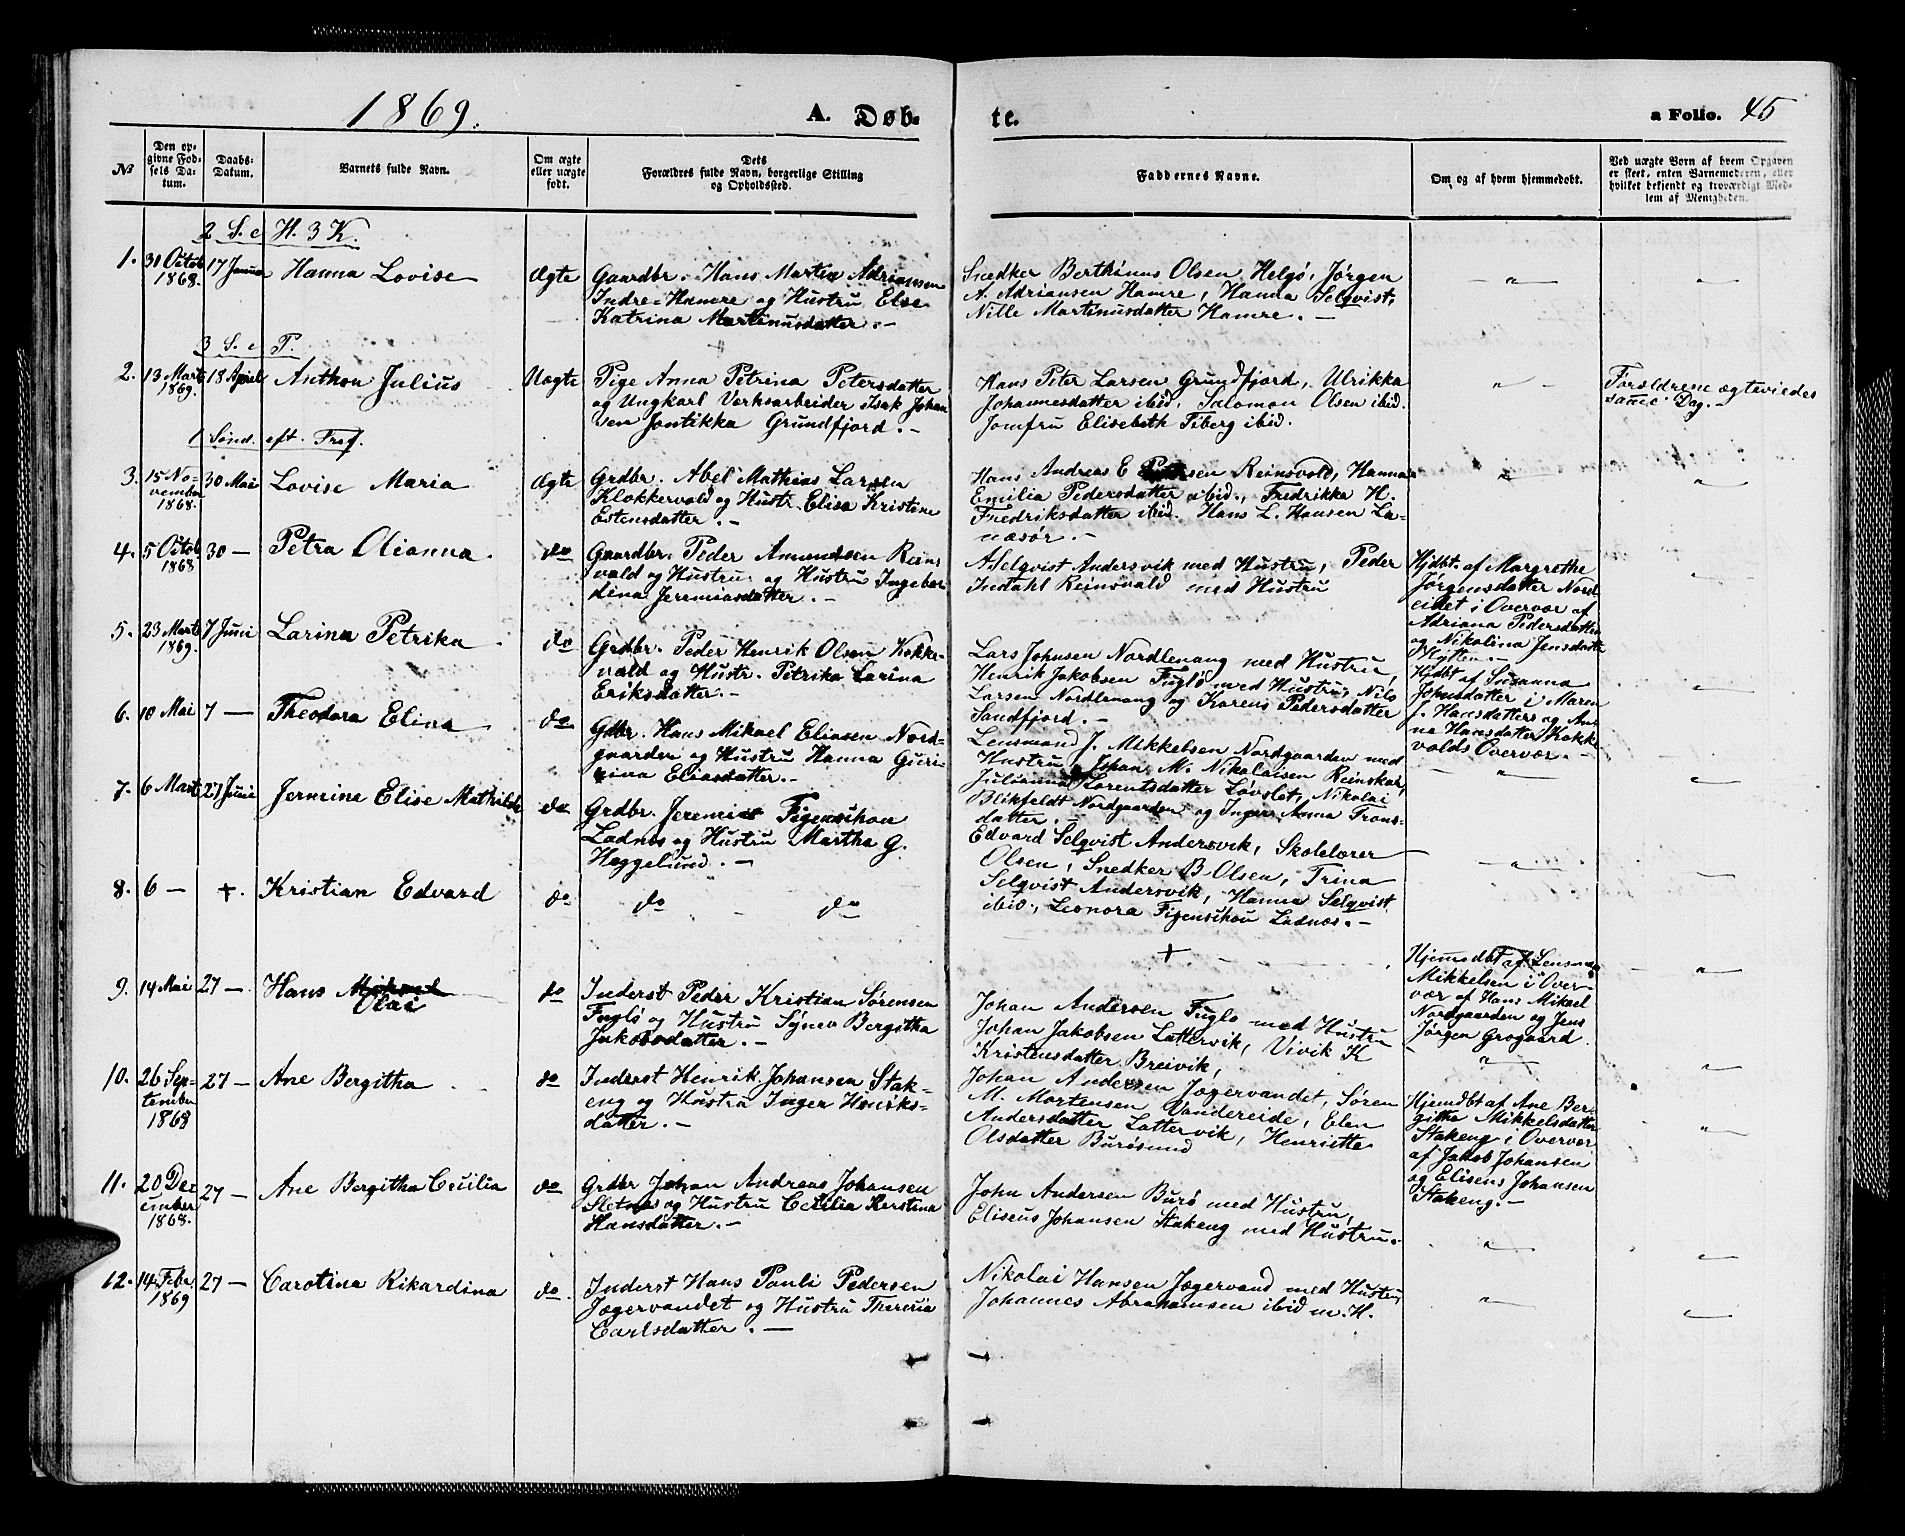 1869.
A. Døb-
te.
a Folio. 45
No
Den op-
givne Fød-
sels Da-
tum.
Daabs-
Datum.
Barnets fulde Navn.
Om ægte
eller uægte
født.
Dets
Forældres fulde Navn, borgerlige Stilling
og Opholdssted.
Faddernes Navne.
Om og af hvem hjemmedøbt.
Ved uægte Børn af hvem Opgaven
er skeet, enten Barnemoderen, eller
hvilket bekjendt og troværdigt Med-
lem af Menigheden.
2 S. e H. 3 K.
1.
31 Octob
1868.
17 Janua
Hanna Lovise
Ægte
Gaardbr. Hans Martin Adriansen
Indre-Hamre og Hustru Else
Katrina Martinusdatter.-
Snedker Berthinus Olsen Helgø, Jørgen
A. Adriansen Hamre, Hanna Selqvist,
Nille Martinusdatter Hamre.-
3 S. e P.
2.
13 Marts
1869.
18 April
Anthon Julius
Uægte
Pige Anna Petrina Petersdatter
og Ungkarl Værksarbeider Isak Johan
sen Jontikka Grundfjord.-
Hans Peter Larsen Grundfjord, Ulrikka
Johannesdatter ibid, Salomon Olsen ibid.
Jomfru Elisebeth Fiberg ibid.
Forældrene ægteviedes
samme Dag.-
1 Sønd. eft. Tref.
3.
15 No-
vember
1868.
30 Mai
Lovise Maria
Ægte
Grdbr. Abel Mathias Larsen
Klokkervold og Hustr. Elise Kristine
Estensdatter.-
Hans Andreas E Reinsvold, Hanna
Emilia Pedersdatter ibid., Fredrikka H.
Fredriksdatter ibid. Hans L. Hansen La-
næsør.-
4.
5 Octob
1868
30 -
Petra Olianna.
do
Gaardbr. Peder Amundsen Reins
vold og Hustru. og Hustru Ingebor
dina Jeremiasdatter.-
A Selqvist Andersvik med Hustru, Peder
Indahl Reinsvald med Hustru
Hjdbt. af Margrethe
Jørgensdatter Nord
eidet i Overvær af
Adriana Pedersdatter
og Nikolina Jensdatter
Nytten.-
5.
23 Marts
1869.
7 Juni
Larina Petrika
do
Grdbr. Peder Henrik Olsen Kokke-
vold og Hustr. Petrika Larina
Eriksdatter.-
Lars Johnsen Nordlenang med Hustru,
Henrik Jakobsen Fuglø med Hustru, Nils
Larsen Nordlenang og Karens Pedersdatter
Sandfjord.-
Hjdbt af Susanna
Johnsdatter i Maren
J. Hansdatters og An-
ne Hansdatter Kokke-
volds Overvær.-
6.
10 Mai
7 -
Theodora Elina
do
Gdbr. Hans Mikael Eliasen Nord-
gaarden og Hustru Hanna Guri-
na Eliasdatter.-
Lensmand J. Mikkelsen Nordgaarden med
Hustru, Johan M. Nikolaisen Reinskar,
Julianna Lorentsdatter Løvslet, Nikolai
Blikfeldt Nordgaarden og Inger Anna Trons-
datter.-
7.
6 Marts
27 Juni
Jermine Elise Mathilde
do
Grdbr. Jeremias Figenschou
Ladnes og Hustru Martha G.
Heggelund.-
Edvard Selqvist Andersvik, Skolelærer
Olsen, Snedker B Olsen, Trina
Selqvist Andersvik, Hanna Selqvist
ibid., Leonora Figenschou Ladnes.-
8.
6 -
+.
Kristian Edvard
do
do do
+
Hjemdbt af Lensmd
Mikkelsen i Over-
vær af Hans Mikael
Nordgaarden og Jens
Jørgen Grogaard.
9.
14 Mai
27 -
Hans Mikael
Olai
do
Inderst Peder Kristian Sørensen
Fuglø og Hustru Synev Bergitha
Jakobsdatter.-
Johan Andersen Fuglø med Hustru
Johan Jakobsen Lattervik, Vivik K
Kristensdatter Breivik,
10.
26 Sep-
tember
1868
27 -
Ane Bergitha
do
Inderst Henrik Johansen Stak-
eng og Hustru Inger Henriks-
datter.-
Johan Andersen Jægervandet, Søren
M. Mortensen Vandereide, Elen
Andersdatter Lattervik, Henriette
Olsdatter Burøsund
Hjemdbt af Ane Ber-
githe Mikkelsdatter
Stakeng i Overvær
af Jakob Johansen
og Elisens Johansen
Stakeng.-
11.
20 Dec
ember
1868.
27 -
Ane Bergitha Cecilia
do
Grdbr Johan Andreas Johansen
Sletnes og Hustru Cecilia Kerstina
Hansdatter.-
John Andersen Burø med Hustru,
Eliseus Johansen Stakeng med Hustru.-
12.
14 Febr
1869
27 -
Carotina Rikardina
do.
Inderst Hans Pauli Pedersen
Jægervandet og Hustru Theresia
Carlsdatter.-
Nikolai Hansen Jægervand med Hustru
Johannes Abrahamsen ibid m. H.